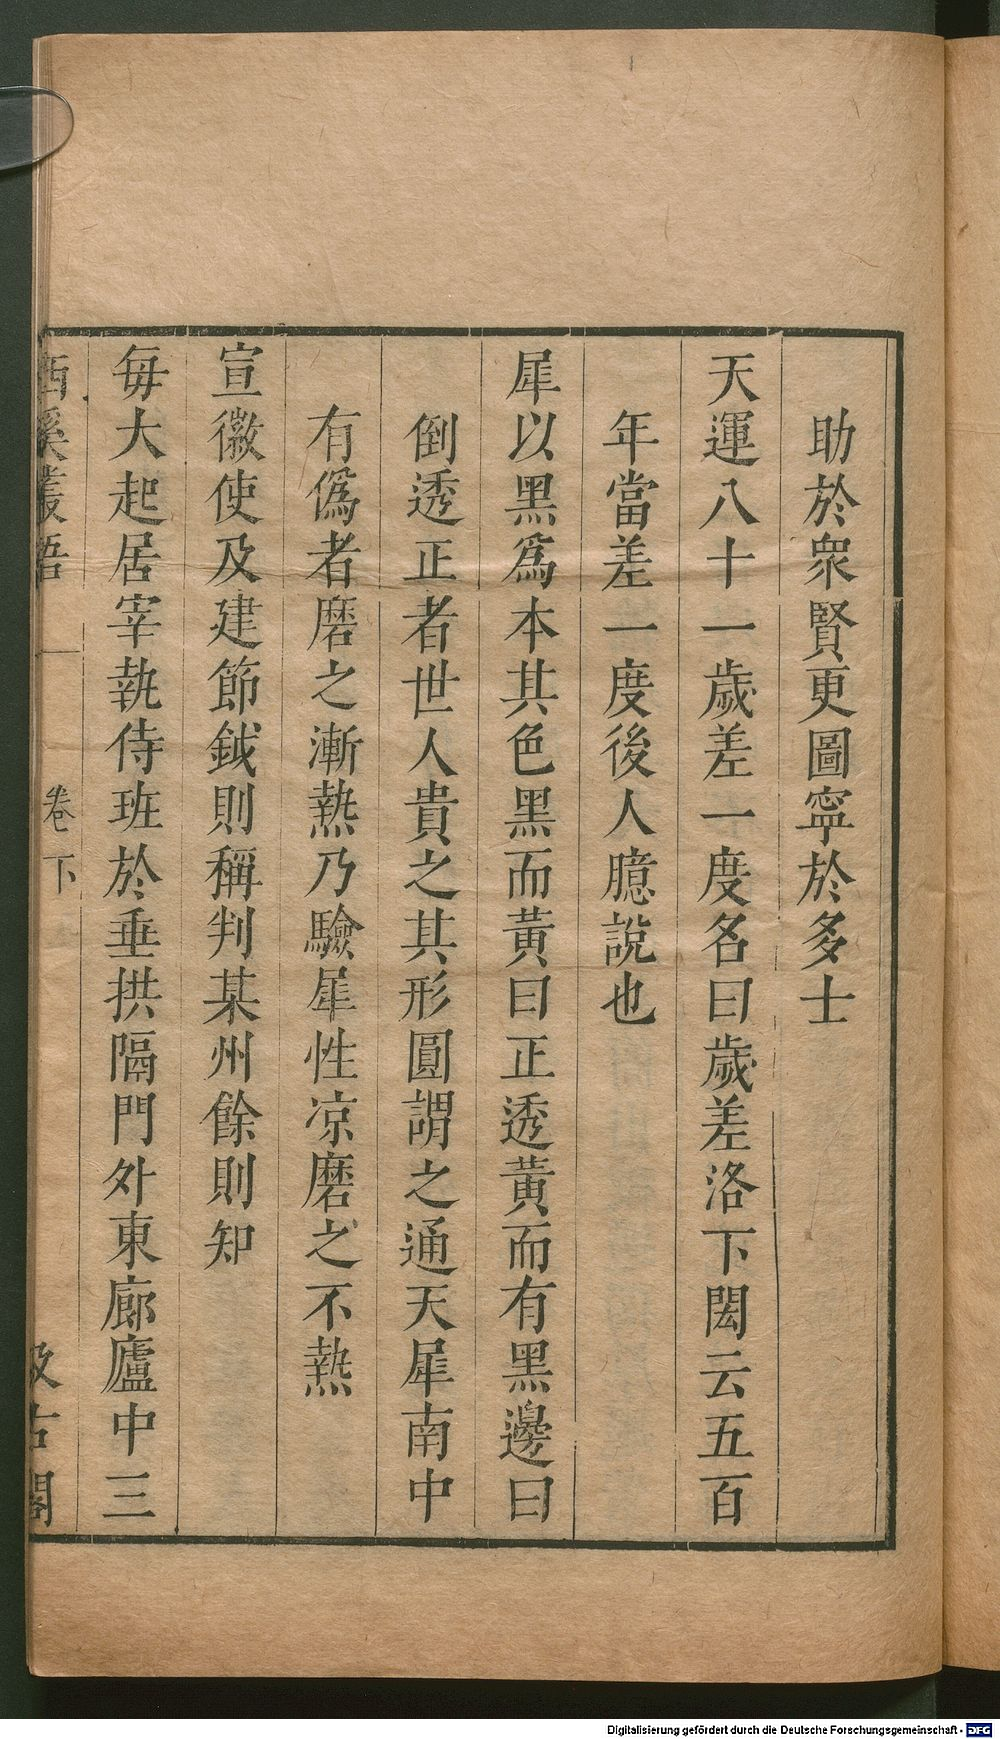 助於衆賢更圖寧於多士
天運八十一歲差一度名曰歲差洛下閎云五百
年當差一度後人臆說也
犀以黑爲本其色黑而黃曰正透黃而有黑邊曰
倒透正者世人貴之其形圓謂之通天犀南中
有僞者磨之漸熱乃驗犀性凉磨之不熱
宣徽使及建節鉞則稱判某州餘則知
每大起居宰執侍班於垂拱隔門外東廊廬中三
西溪叢語 卷下 汲古閣
Digitalisierung gefördert durch die Deutsche Forschungsgemeinschaft - DFG